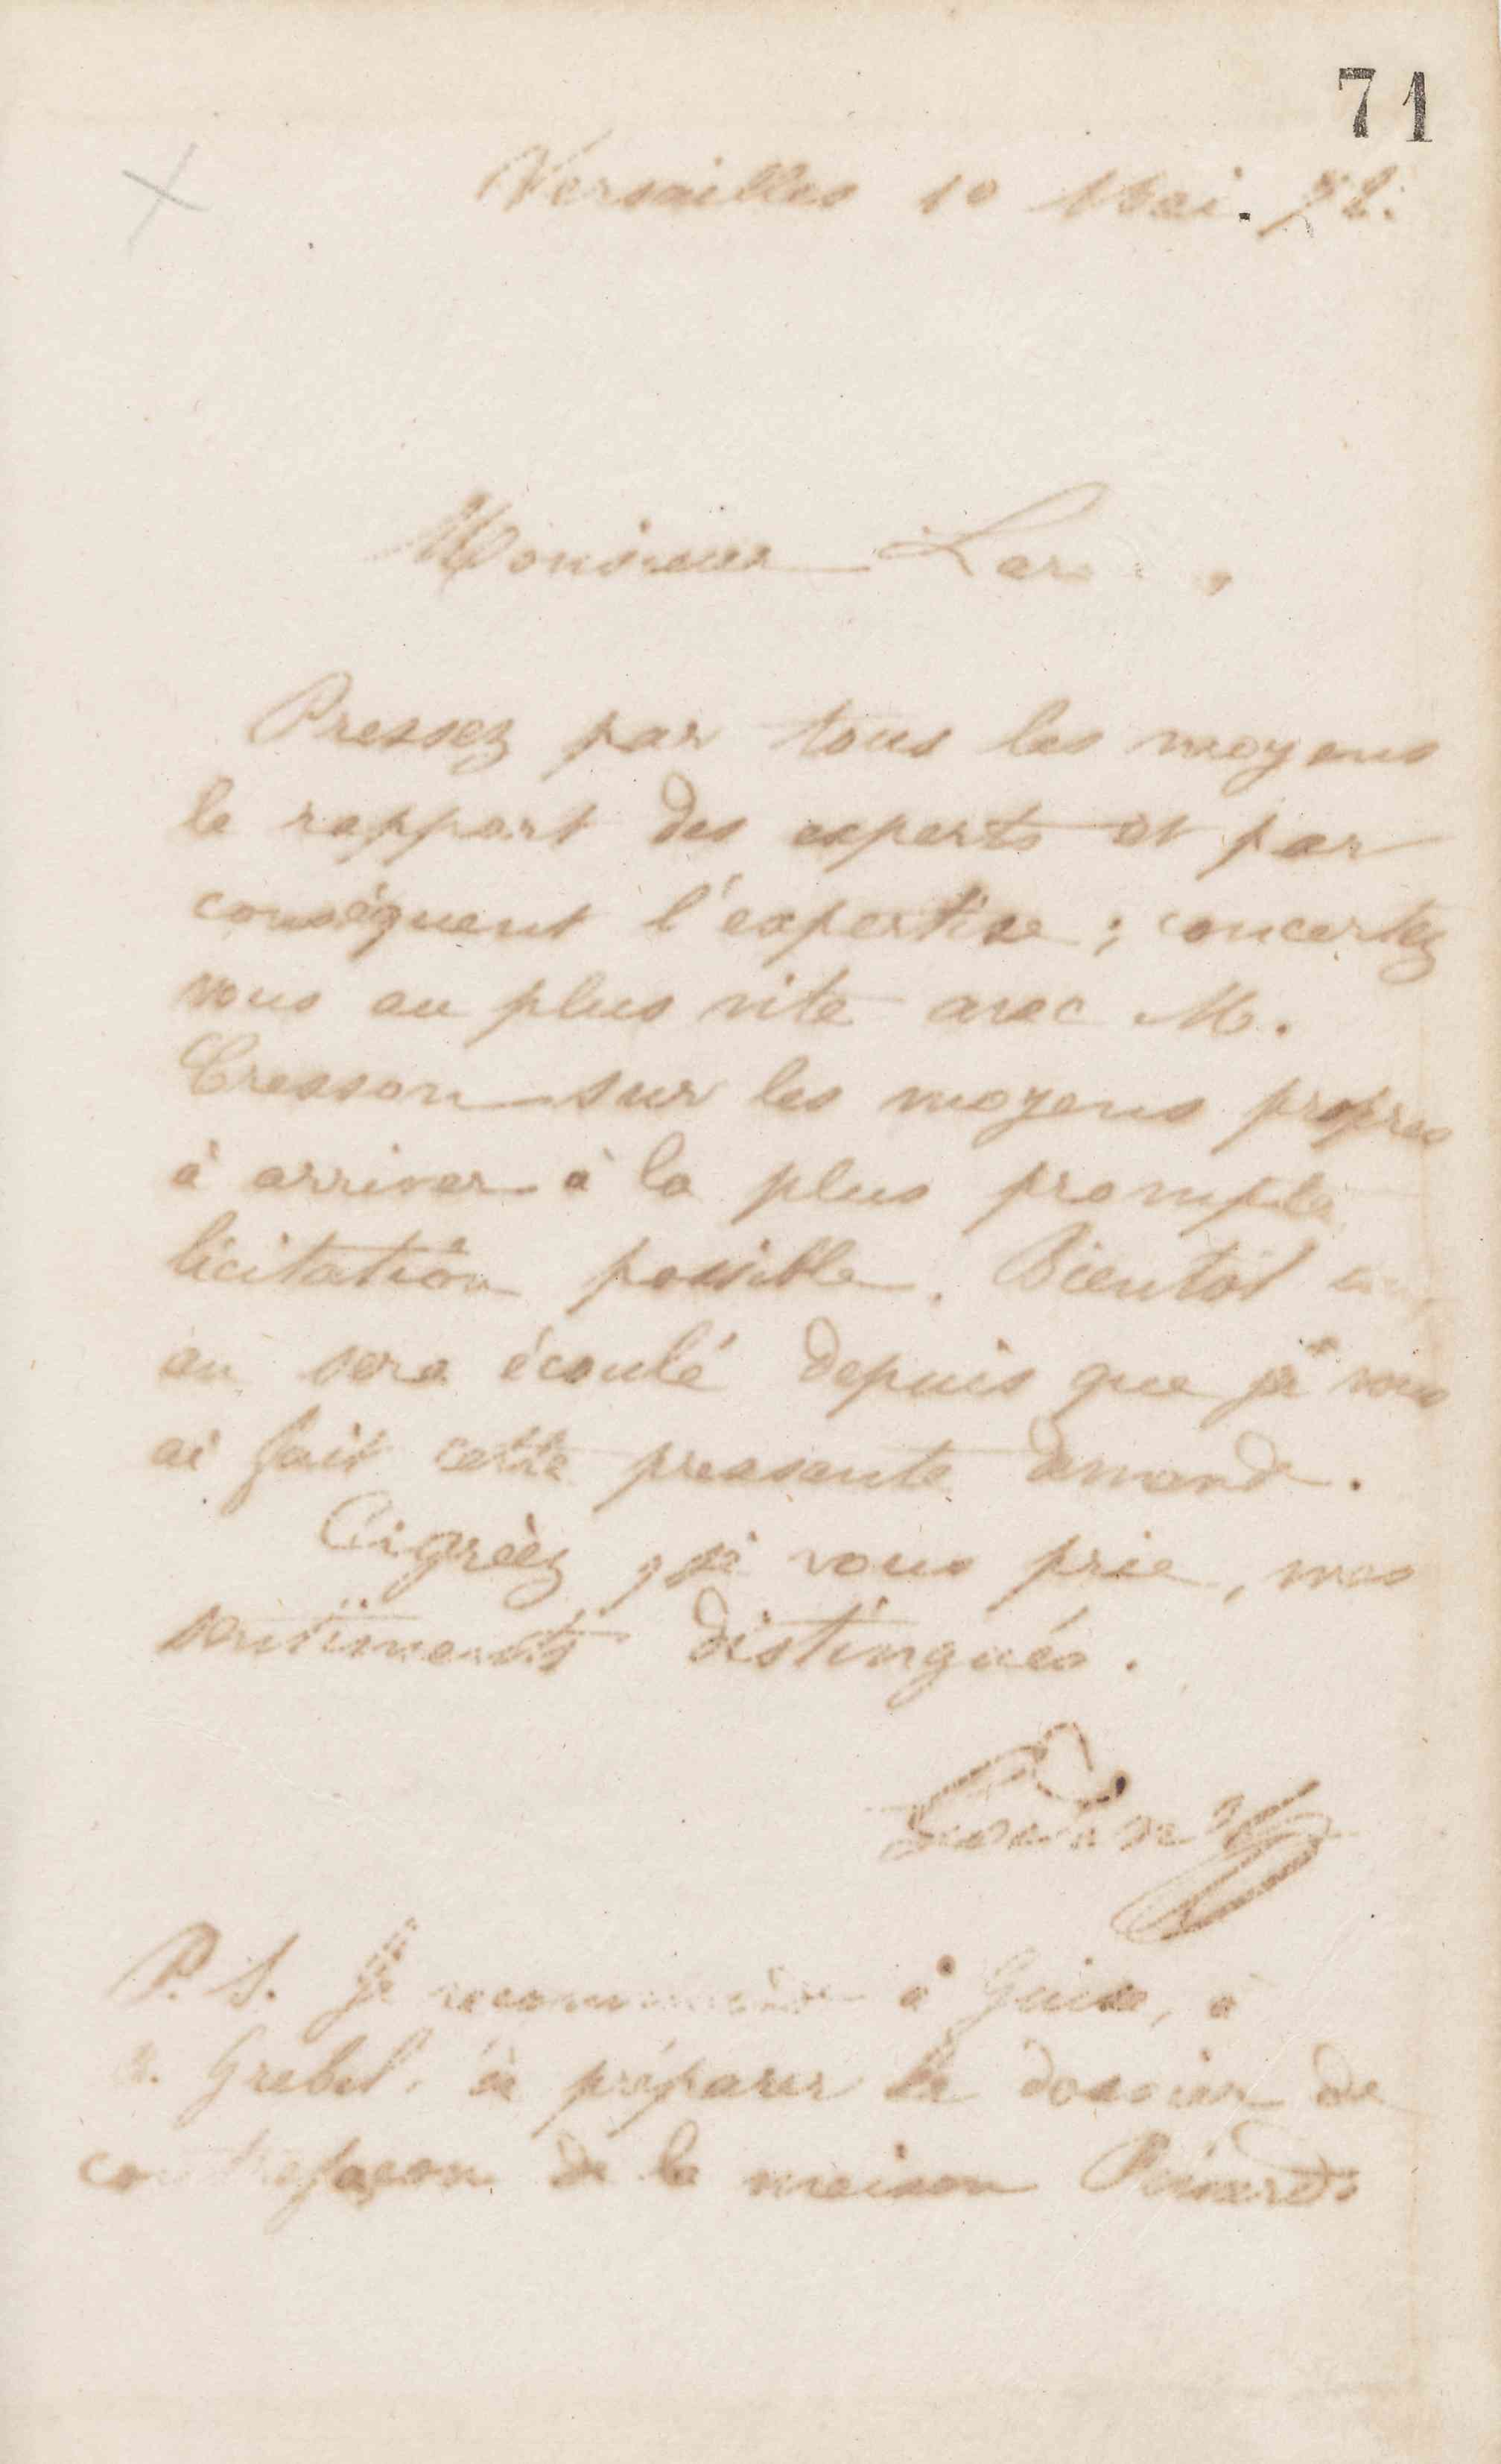 71
Versailles 10 Mai. 72.
Monsieur
Pressez par tous les moyens
le rapport des experts et par
conséquent l'expertise ; concertez
vous au plus vite avec M.
Cresson sur les moyens propres
à arriver à la plus prompte
licitation possible. Bientôt un
an sera écoulé depuis que je vous
ai fait cette pressente demande.
Agréez, je vous prie, mes
sentiments distingués.
Godin
P.S. Je recommande à Guise, à
M. Grebel, de préparer le dossier de
contrefaçon de la maison